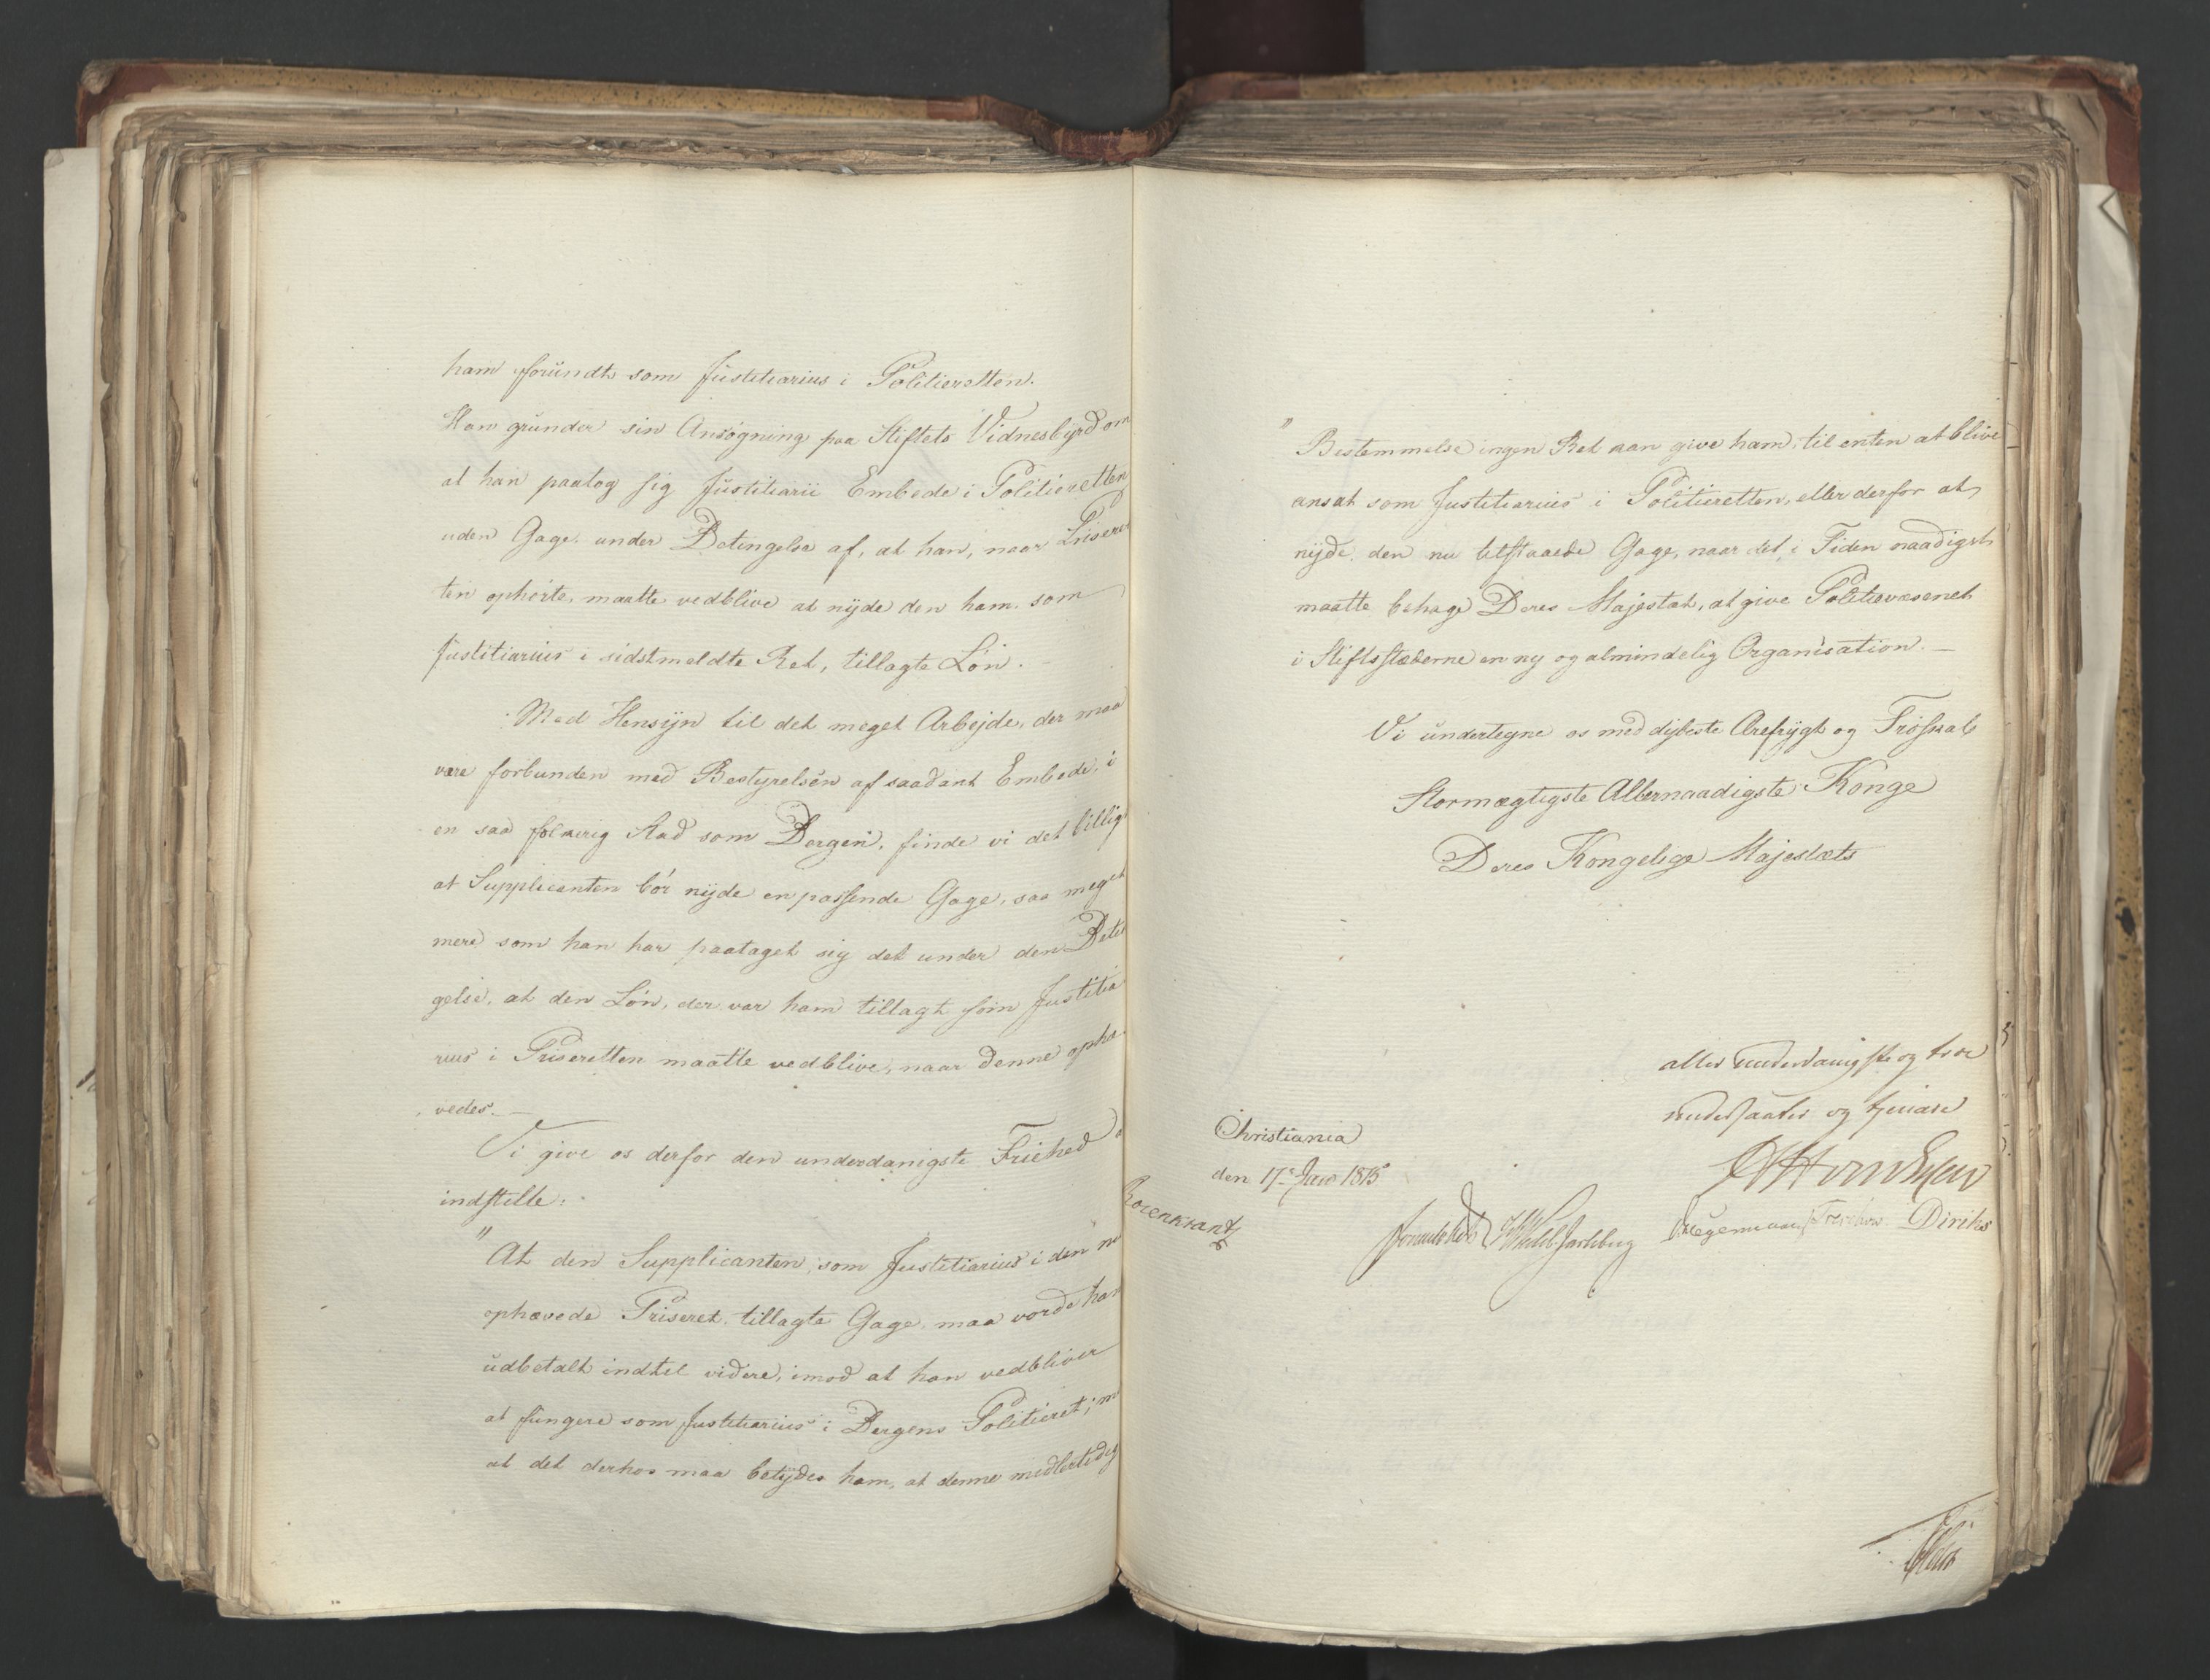 ham forundt som Justitiarius i Politieretten.
Han grunder sin Ansøgning paa Stiftets Vidnesbyrd om
at han paatog sig Justitiarii Embede i Politieretten
uden Gage, under Betingelse af, at han, naar Priseret
ten ophørte, maatte vedblive at nyde den ham, som
Justitiarius i sidstmeldte Ret, tillagte Løn.
Med Hensyn til det meget Arbejde, der maa
være forbunden med Bestyrelsen af saadant Embede, i
en saa folkerig Stad som Bergen, finde vi det billigt
at Supplicanten bør nyde en passende Gage, saa meget
mere som han har paataget sig det under den Betin
gelse, at den Løn, der var ham tillagt som Justitia
rius i Priseretten maatte vedblive, naar denne ophæ
vedes.
Vi give os derfor den underdanigste Friehed a
indstille:
" At den Supplicanten, som Justitiarius i den nu
ophævede Priseret, tillagte Gage, maa vorde ham
udbetalt indtil videre, imod at han vedbliver
at fungere som Justitiarius i Bergens Politieret; m
at det derhos maa betydes ham, at denne midlertidig
" Bestemmelse ingen Ret kan give ham, til enten at blive
ansat som Justitiarius i Politieretten, eller derfor at
nyde den nu tilstaaede Gage, naar det i Tiden naadigst
maatte behage Deres Majestæt, at give Politievæsenet
i Stiftsstæderne en ny og almindelig Organisation. —
Vi undertegne os med dybeste Ærefrygt og Troskab
Stormægtigste Allernaadigste Konge
Deres Kongelige Majestæts
allerunderdanigste og troe
undersaatter og tjenere
Christiania
den 17de Jan 1815
Rosenkrantz
Sommerhielm HWedel-Jarlsberg Hegermann Treschow Diriks